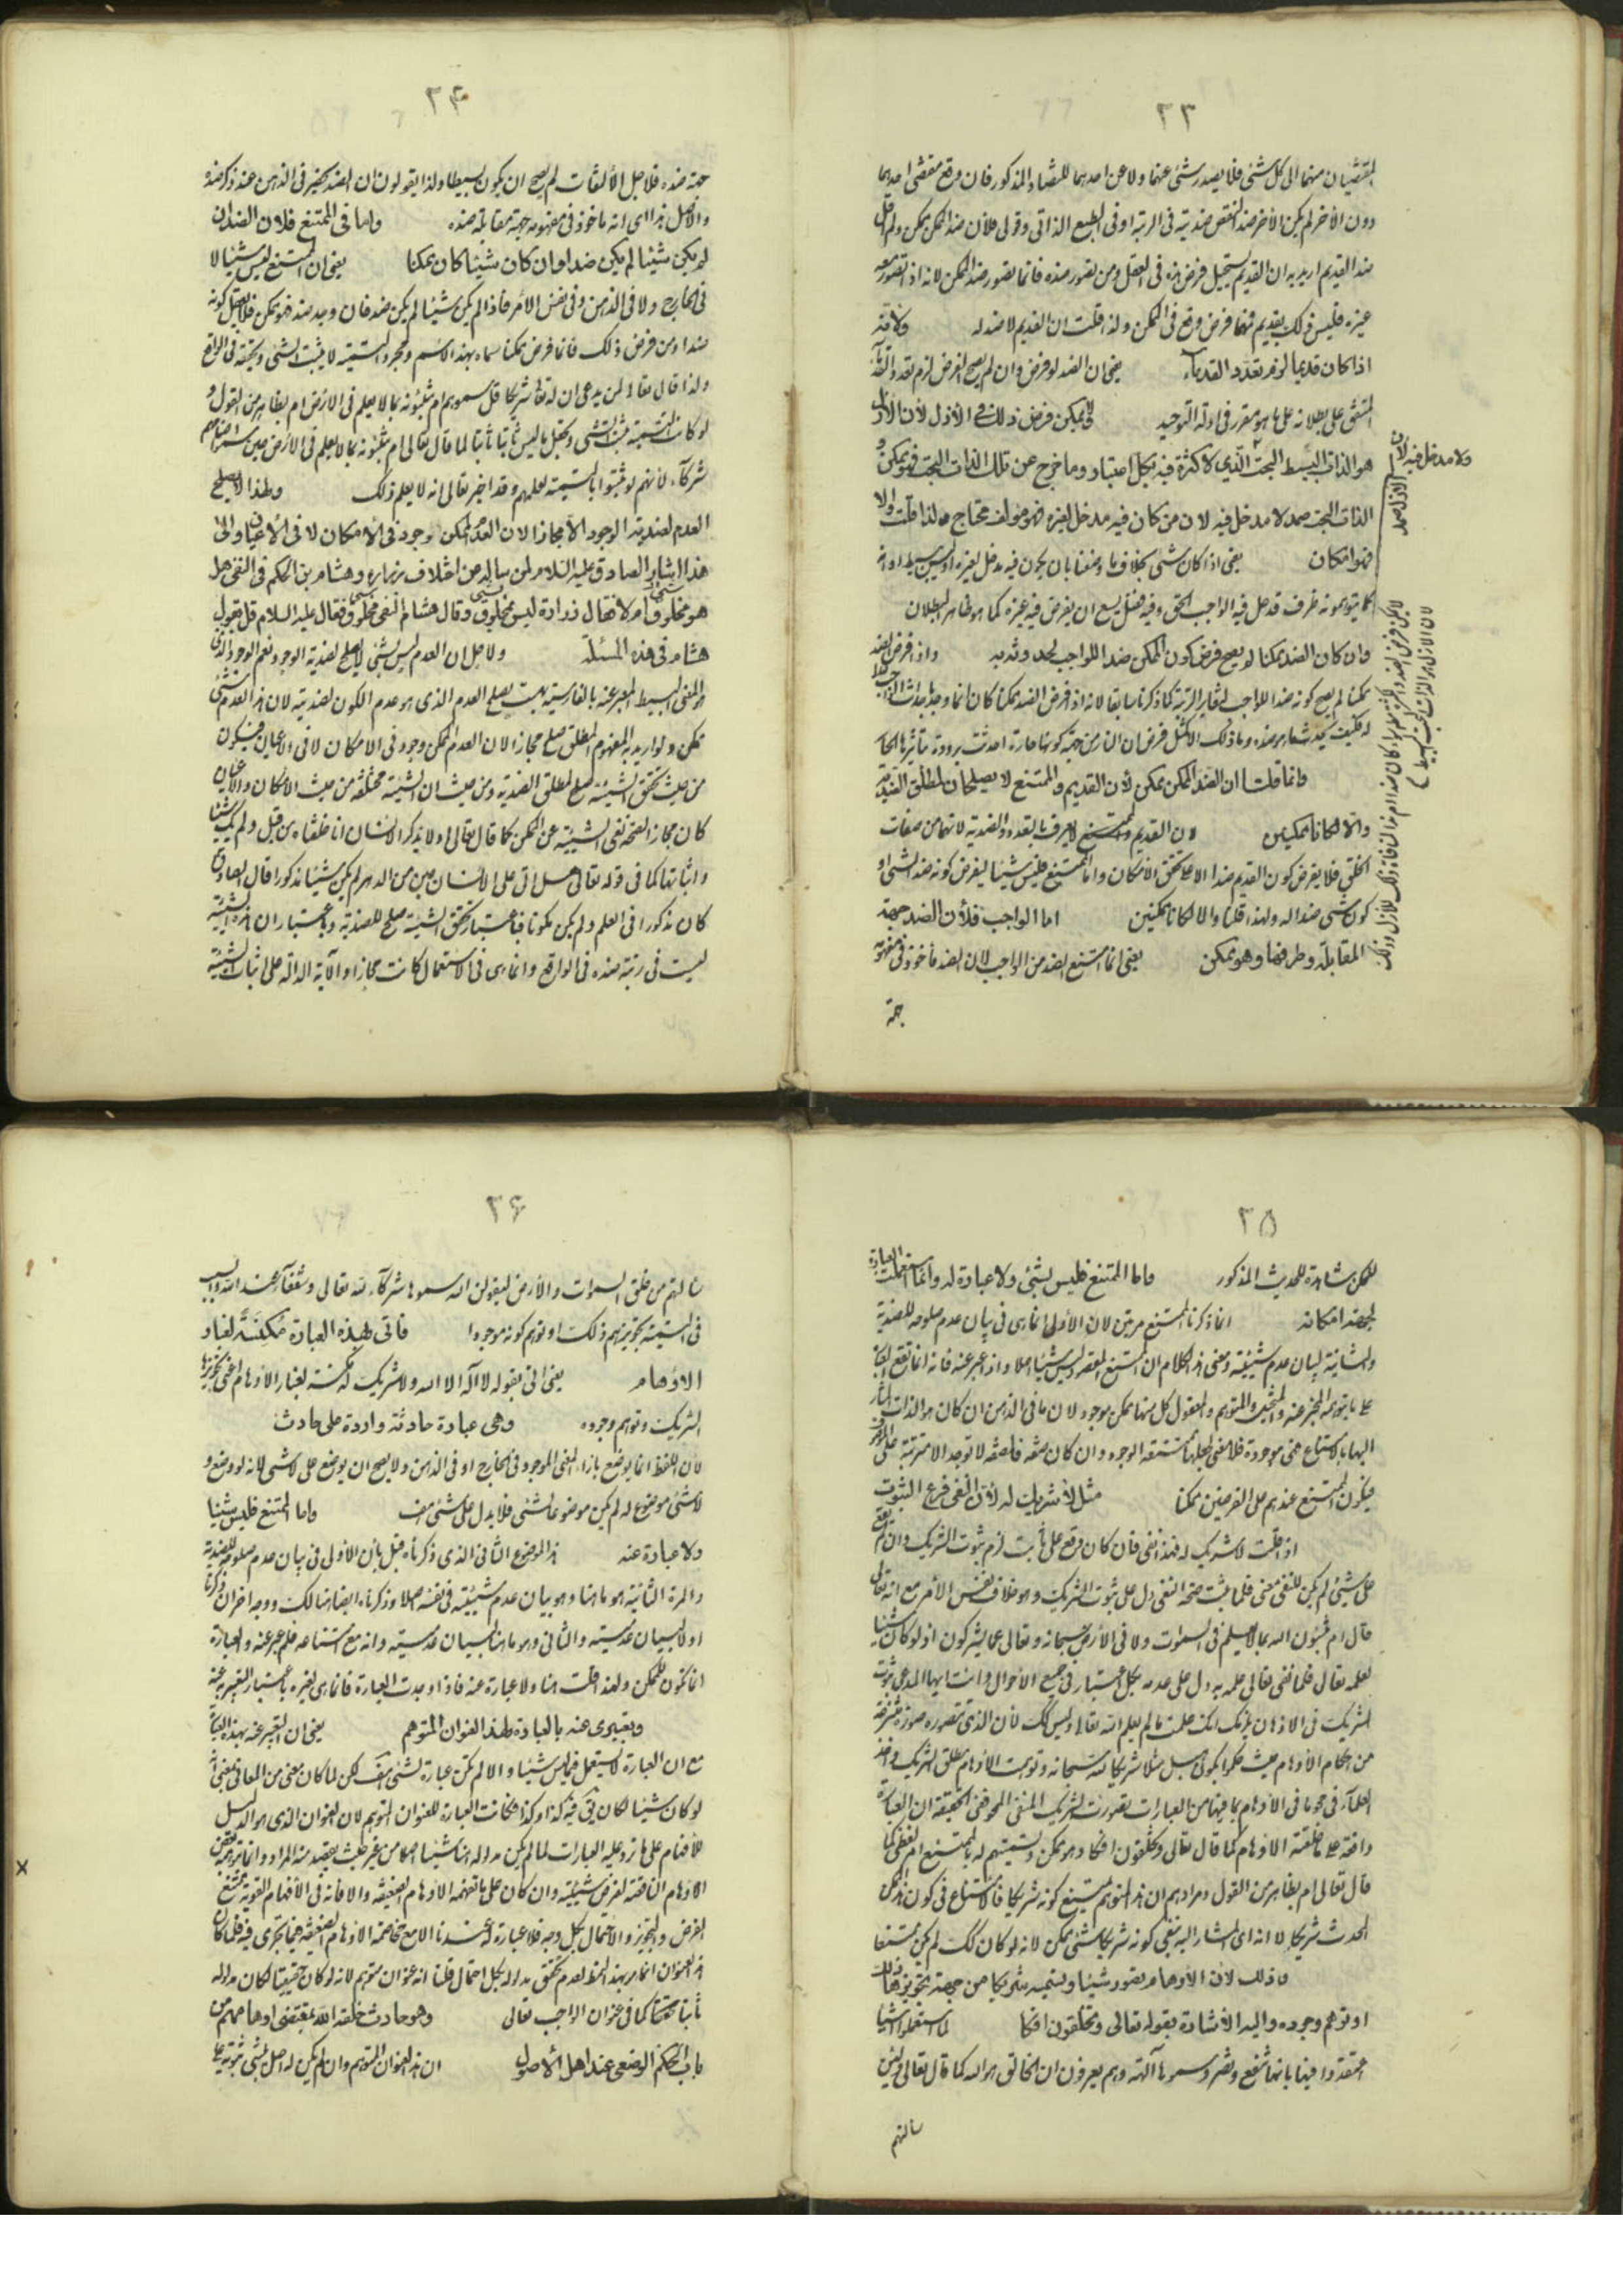 ٢٣
المقتضيان منهما الى كل شئ فلا يصدر شئ عنهما ولا عن احدهما للتضاد المذكور فان وقع مقتضى احدهما
دون الأخر لم يكن الأخر ضدا لنقص ضديته في الرتبة او في الطبع الذاتي وقولى فلأن ضد الممكن ممكن ولم اقل
ضد القديم اريد به ان القديم يستحيل فرض في العقل ومن تصور ضده فانما تصور ضد الممكن لانه اذا تصور معه
غيره فليس ذلك بقديم فمهما فرض وقع في الممكن ولذا قلت ان القديم لا ضد له ولأنه
اذا كان قديما لزم تعدد القدماء يعنى ان الضد لو فرض وان لم يصح الفرض لزم تعدد القدماء
المتفق على بطلانه على ما هو مقرر في ادلة التوحيد ولا يمكن فرض ذلك في الأزل لأن الأزل
هو الذات البسيط البحت الذي لا كثرة فيه بكل اعتبار وما خرج عن تلك الذات البحت فهو ممكن و
الذات البحت صمد لا مدخل فيه لان من كان فيه مدخل لغيره فهو مؤلف محتاج ولذا قلت والا
فهو امكان يعنى اذا كان شئ بخلاف ما وصفنا بان يكون فيه مدخل لغيره او ليس ببسيط او انه
كما يتوهمونه ظرف قد حل فيه الواجب الحق وفيه فضل يسع ان يفرض فيه غيره كما هو ظاهر البطلان
وان كان الضد ممكنا لم يصح فرض كون الممكن ضدا للواجب لحدوثه به واذا فرض الضد
ممكنا لم يصح كونه ضدا للواجب لتغاير الرتبة كما ذكرنا سابقا لانه اذا فرض الضد ممكنا كان انما وجد باحداث الواجب
له فكيف يحدث ضده وما ذلك الا كمثل فرض ان النار من جهة كونها حارة احدثت برودة بتأثيرها الحار
وانما قلت ان الضد الممكن ممكن لأن القديم والممتنع لا يصلحان لمطلق الضدية
والا لكانا ممكنين لان القديم والممتنع لا يعرف بالتعدد والضدية لانها من صفات
الخلق فلا يفرض كون القديم ضدا الا مع تحقق الامكان واما الممتنع فليس شيئا ليفرض كونه ضدا لشئ او
كون شئ ضدا له ولهذا قلنا والا لكانا ممكنين اما الواجب فلأن الضد جهة
المقابلة وطرفها وهو ممكن يعنى انما امتنع الضد من الواجب لان الضد مأخوذ في مفهومه
جهة
ولا مدخل فيه لأن
الازل صمد
٢٤
جهة ضده فلاجل الألتفات لم يصح ان يكون بسيطا ولذا يقولون ان الضد يحضر في الذهن عند ذكر ضده
والاصل هذا اى انه مأخوذ في مفهومه جهة مقابلة ضده واما في الممتنع فلان الضد ان
لم يكن شيئا لم يكن ضدا وان كان شيئا كان ممكنا يعنى ان الممتنع ليس شيئا لا
في الخارج ولا في الذهن وفي نفس الأمر فاذا لم يكن شيئا لم يكن ضد فان وجد ضد فهو ممكن فلا يعقل كونه
ضدا ومن فرض ذلك فانما فرض ممكنا سماه بهذا الاسم ومجرد التسمية لا يثبت الشئ ويحققه في الواقع
ولذا قال تعالى لمن يدعى ان له تعالى شركا قل سموهم ام تنبئونه بما لا يعلم في الارض ام بظاهر من القول و
لو كانت التسمية تثبت الشئ وتجعل ما ليس ثابتا ثابتا لما قال تعالى ام تنبئونه بما لا يعلم في الأرض حين سموا اصنامهم
شركآء لأنهم لو ثبتوا بالتسمية لعلمهم وقد اخبر تعالى انه لا يعلم ذلك ولهذا لا يصلح
العدم لضدية الوجود الا مجازا لان العدم الممكن وجود في الأمكان لا في الأعيان والى
هذا اشار الصادق عليه السلام لمن سأله عن اختلاف زرارة وهشام بن الحكم في النفى هل
هو مخلوق ام لا فقال زرارة ليس مخلوق وقال هشام النفى مخلوق فقال عليه السلام قل بقول
هشام في هذه المسئلة ولاجل ان العدم ليس بشئ لا يصلح لضدية الوجود نعم الوجود الذى
هو المعنى البسيط المعبر عنه بالفارسية بهست يصلح العدم الذى هو عدم الكون لضديته لان هذا العدم شئ
ممكن ولو اريد به المفهوم المطلق صلح مجازا لان العدم الممكن وجود في الامكان لا في الأعيان فيكون
من حيث تحقق الشيئية صلح لمطلق الضدية ومن حيث ان الشيئية مختلفة من حيث الأمكان والأعيان
كان مجازا لصحة نفى الشيئية عن الممكن كما قال تعالى اولا يذكر الانسان انا خلقناه من قبل ولم يك شيئا
واثباتها كما في قوله تعالى هل اتى على الانسان حين من الدهر لم يكن شيئا مذكورا قال الصادق
كان مذكورا في العلم ولم يكن مكونا فباعتبار تحقق الشيئية صلح للضدية وباعتبار ان هذه الشيئية
ليست في رتبة ضده في الواقع وانما هى في الاستعمال كانت مجازا والآية الدالة على اثبات الشيئية
٢٥
للممكن شاهدة للحديث المذكور واما الممتنع فليس بشئ ولا عبادة له وانما استعملت العبارة
لجهة امكانه انما ذكرنا الممتنع مرتين لان الأولى انما هى في بيان عدم صلوحه للضدية
والثانية لبيان عدم شيئيته ومعنى هذا الكلام ان الممتنع المقصود ليس شيئا اصلا واذا عبر عنه فانه انما تقع العبارة
على ما يتوهمه المخبر عنه والمثبت والمتوهم والمعقول كل منها ممكن موجود لان ما في الذهن ان كان هو الذات المشار
اليها بالامتناع فهى موجودة فلا معنى لجعلها ممتنعة الوجود وان كان صفة فالصفة لا توجد الا مترتبة على الموصوف
فيكون الممتنع عندهم على الفرضين ممكنا مثل لا شريك له لأن النفى فرع الثبوت
اذا قلت لا شريك له فهذا نفى فان كان وقع على ثابت لزم ثبوت الشريك وان لم يقع
على شئ لم يكن للنفى معنى فلما ثبت صحة النفى دل على ثبوت الشريك وهو خلاف نفس الأمر مع انه تعالى
قال ام تنبئون الله بما لا يعلم في السموات ولا في الأرض سبحانه وتعالى عما يشركون اذ لو كان شيئا
لعلمه تعالى فلما نفى تعالى علمه به دل على عدمه بكل اعتبار في جميع الأحوال وانت ايها المدعى ثبوت
الشريك في الاذهان يلزمك انك علمت ما لم يعلم الله تعالى وليس كك لأن الذى تتصوره صورة مخترعة
من احكام الأوهام حيث حكموا بكون هبل مثلا شريكا لله سبحانه وتوهمت الأوهام مطلق الشريك واخذ
العلمآء في محو ما في الأوهام بما فيها من العبارات تصورت الشريك المنفى الممحو ففى الحقيقة ان العبارة
واقعة على ما خلقته الأوهام كما قال تعالى وتخلقون افكا وهو ممكن وتسميتهم له بالممتنع امر لفظى كما
قال تعالى ام بظاهر من القول ومرادهم ان هذا المتوهم يمتنع كونه شريكا فالامتناع في كون هذا الممكن
المحدث شريكا لا انه اى المشار اليه بنفى كونه شريكا شئ ممكن لانه لو كان كك لم يكن ممتنعا
وذلك لأن الأوهام تصور شيئا وتسميه شريكا من جهة تجويزها ذلك
او توهم وجوده واليه الأشارة بقوله تعالى وتخلقون افكا لما استعملوا اشيا
اعتقدوا فيها بانها تنفع وتضر وسموها آلهة وهم يعرفون ان الخالق هو الله كما قال تعالى ولئن
سالتهم
٢۶
سالتهم من خلق السموات والأرض ليقولن الله سموها شركآء لله تعالى وشفعآء عند الله والسبب
في التسمية تجويزهم ذلك او توهم كونه موجودا فاتى بهذه العبادة مكنسة لغبار
الاوهام يعنى اتى بقوله لا اله الا الله ولا شريك له مكنسة لغبار الأوهام اعنى تجويزها
الشريك وتوهم وجوده وهى عبادة حادثة واردة على حادث
لأن اللفظ انما يوضع بازاء المعنى الموجود في الخارج او في الذهن ولا يصح ان يوضع على لا شئ لانه لو وضع و
لا شئ موضوع له لم يكن موضوعا لشئ فلا يدل على شئ واما الممتنع فليس شيئا
ولا عبارة عنه هذا الموضوع الثانى الذى ذكرناه قبل بأن الأولى في بيان عدم صلوحه للضدية
والمرة الثانية هو ما هنا وهو بيان عدم شيئيته في نفسه اصلا وذكرناه ايضا هنالك ووجه اخر ان ذكرنا
اولا لبيان عدميته والثانى وهو ما هنا لبيان عدميته وانه مع امتناعه فلم عبر عنه والعبارة
انما تكون للممكن ولهذا قلت هنا ولا عبارة عنه فاذا وجدت العبارة فانما هى لغيره باعتبار التعبير عنه
وتعبيرى عنه بالعبادة لهذا العنوان المتوهم يعنى ان التعبير عنه بهذه العبارة
مع ان العبارة لا تستعمل فيما ليس شيئا والا لم تكن عبارة لشئ لكن لما كان معنى من المعانى بمعنى انه
لو كان شيئا لكان يق فيه كذا وكذا فكانت العبارة للعنوان المتوهم لان العنوان الذى هو الدليل
للأفهام على ما تؤديه العبارات لما لم يكن مدلوله هنا شيئا اصلا من غير حيث يقصد منه المراد وانما تتوهمه بعض
الاوهام الناقصة لفرض شيئيته وان كان على ما تفهمه الأوهام الضعيفة والا فانه في الأفهام القوية ممتنع
الفرض والتجويز والاحتمال بكل وجه فلا عبارة له عندنا الا مع مخاصمة الاوهام الضعيفة فيما تجرى فيه فلما كان
هذا العنوان انما يراد بهذا اللفظ لعدم تحقق مدلوله بكل احتمال قلنا انه عنوان متوهم لانه لو كان حقيقيا لكان مدلوله
ثابتا متحققا كما في عنوان الواجب تعالى وهو حادث خلقه الله بمقتضى اوهامهم من
باب الحكم الوضعى عند اهل الأصول ان هذا العنوان المتوهم وان لم يكن له اصل لشئ ثبوته على